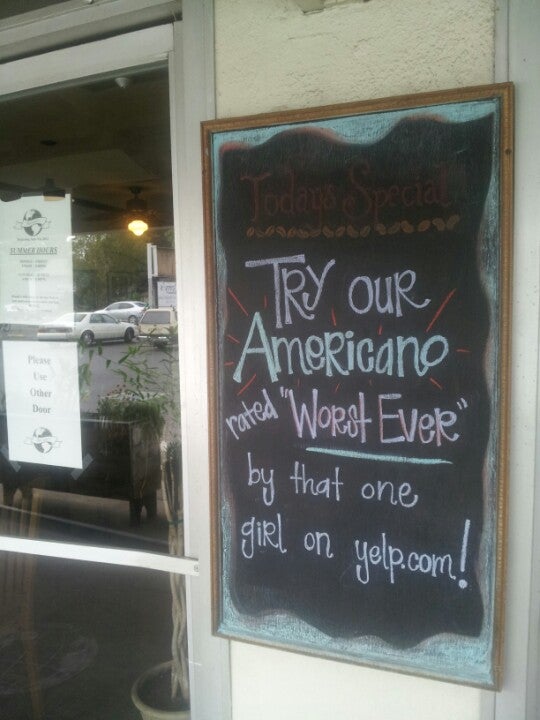 Todays Special
Try our
Americano
rated "Worst Ever"
by that one
girl on yelp.com!
SUMMER HOURS
Please
Use
Other
Door